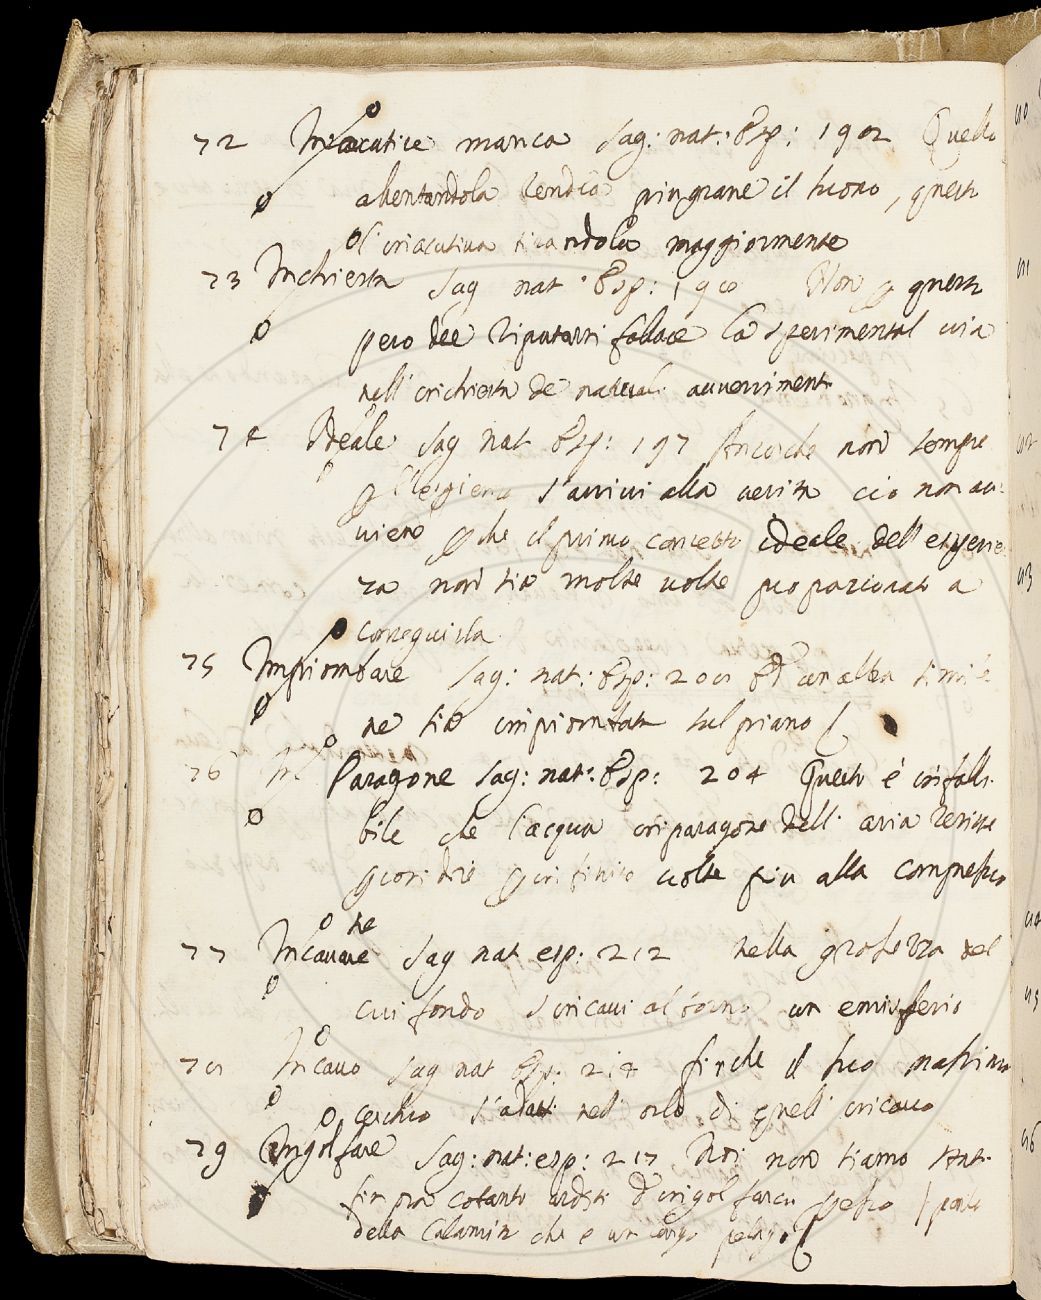 72 manca Sag: nat: Esp: 192 Quello
allentandola rendea più grave il suono, questo
l'inacutiva tirandola maggiormente
73 Inchiesta Sag nat Esp: 190 Non p questo
pero dee riputarsi fallace la sperimental via
nell'inchiesta de naturali avvenimenti
74 Ideale Sag nat Esp: 197 Ancorche non sempre
s'arrivi alla verita cio non av:
viene pche il primo concetto ideale dell'esperie
za non sia molte volte proporzionato a
conseguirla
75 Impiombare Sag: nat: Esp: 200 Ed un'altra simile
ne sia impiombata sul piano
76 In Paragone Sag: nat: Esp: 204 Questo è infalli
bile che l'acqua in paragone dell'aria resiste
p infinite volte piu alla compressio
ne
77 Incavare Sag nat esp: 212 nella grossezza del
cui fondo s'incavi al torno un emisferio
78 Incavo Sag nat Esp: 214 finche il suo massimo
cerchio s'adatti nell orlo di quell incavo
79 Ingolfare Sag: nat: esp: 217 Noi non siamo stati
fin pra cotanto arditi d'ingolfarci
della Calamita che e un largo pelago